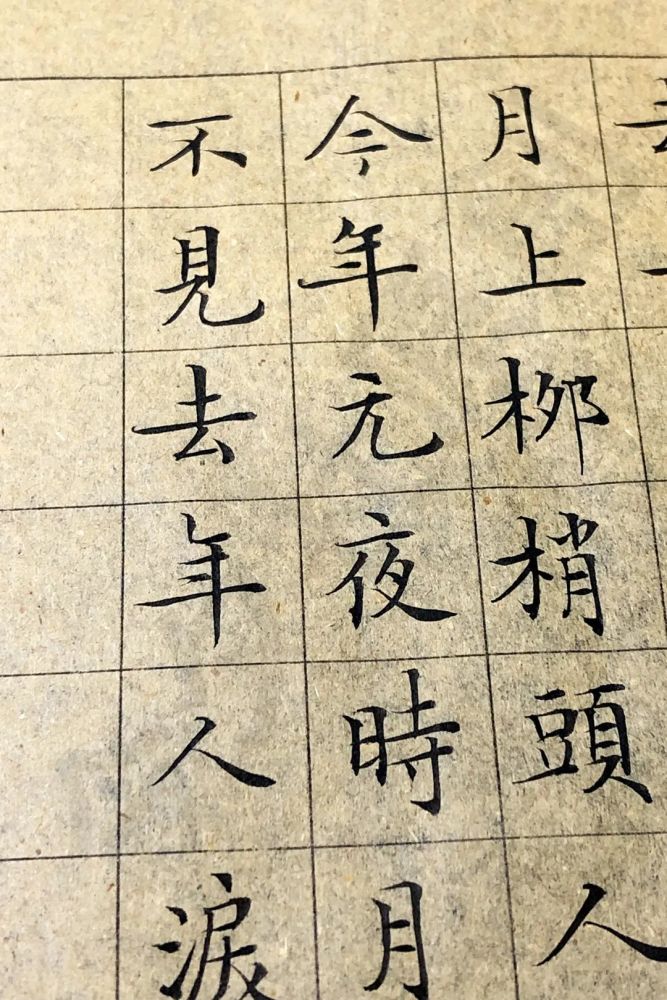 月上柳梢頭人
今年元夜時月
不見去年人淚